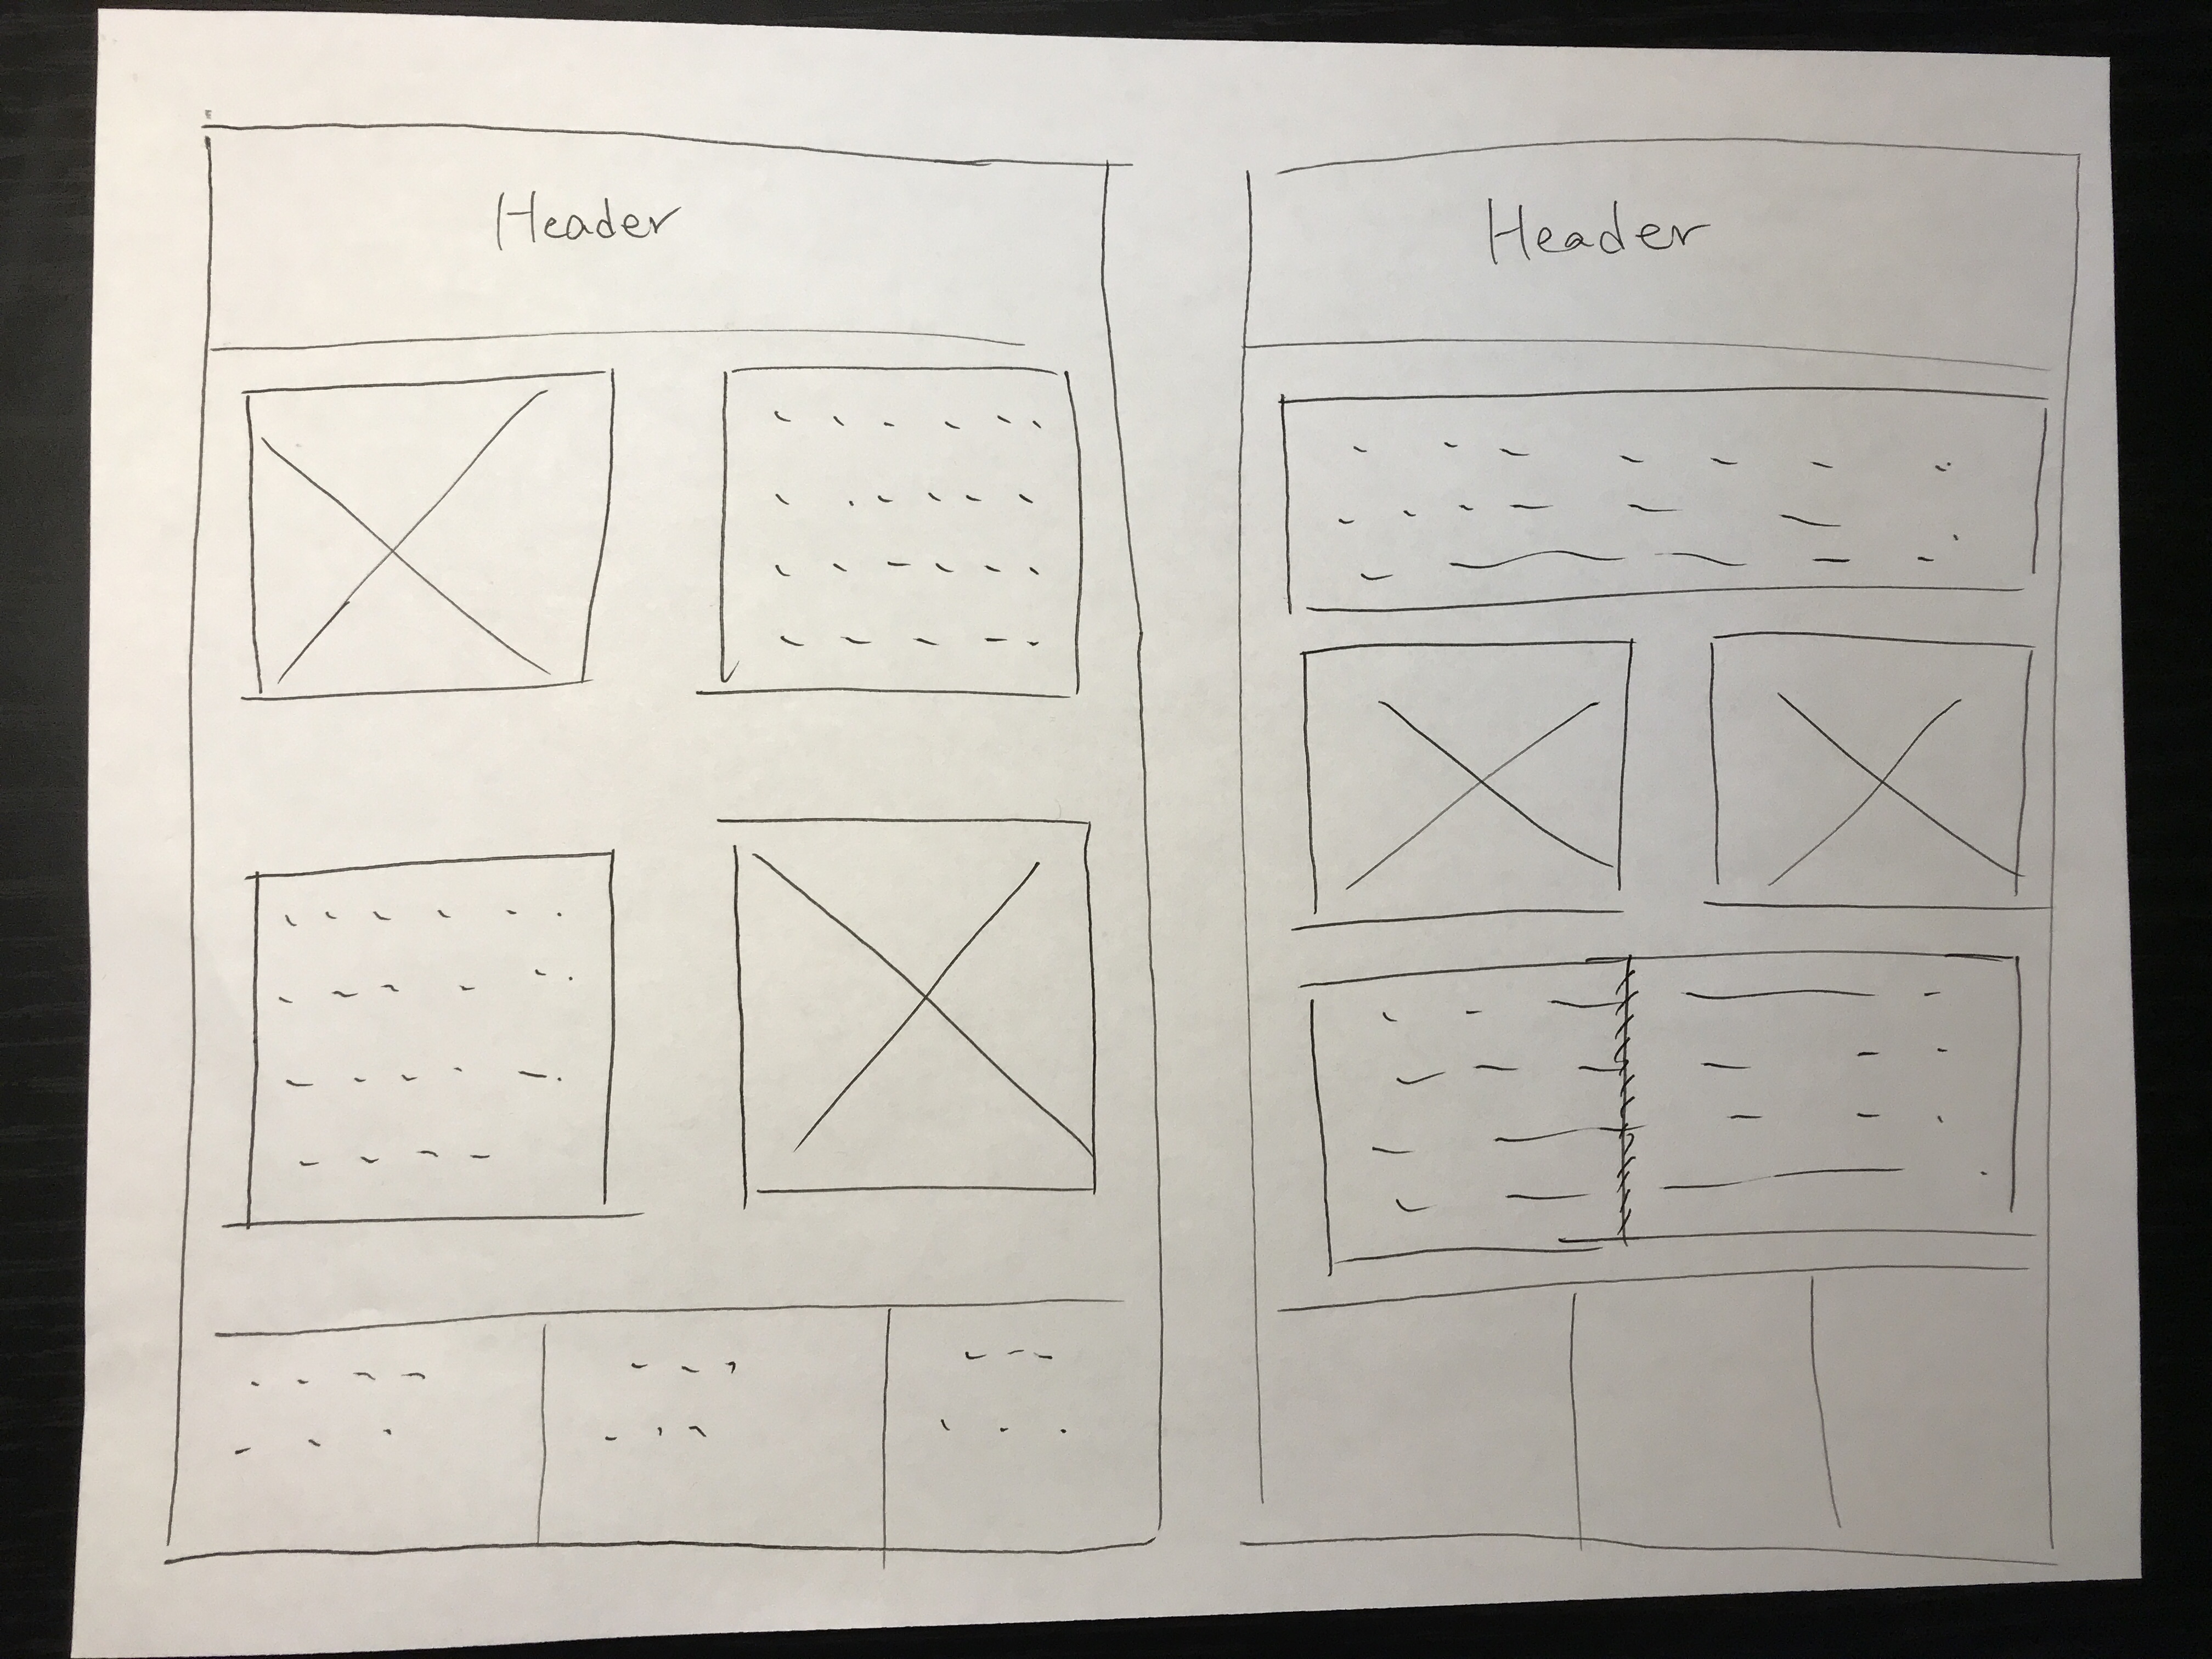 Header
Header